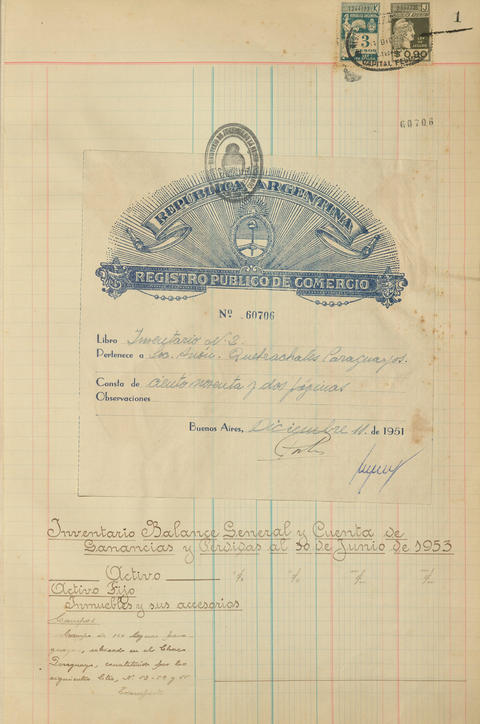 1
3
0.90
60706
REPUBLICA ARGENTINA
REGISTRO PUBLICO DE COMERCIO
Nº 60706
Libro Inventario N. 3.
Pertenece a Soc. Anón. Quebrachales Paraguayos.
Consta de ciento noventa y dos páginas
Observaciones
Buenos Aires, Diciembre 11. de 1951
Inventario Balance General y Cuenta de
Ganancias y Pérdidas al 30 de Junio de 1953
Activo
Activo Fijo
Inmuebles y sus accesorios
Campos
Campo de 160 leguas para-
guayas, ubicado en el Chaco
Paraguayo, constituido por los
siguientes lotes, Nº 53-54 y 55
Transporte